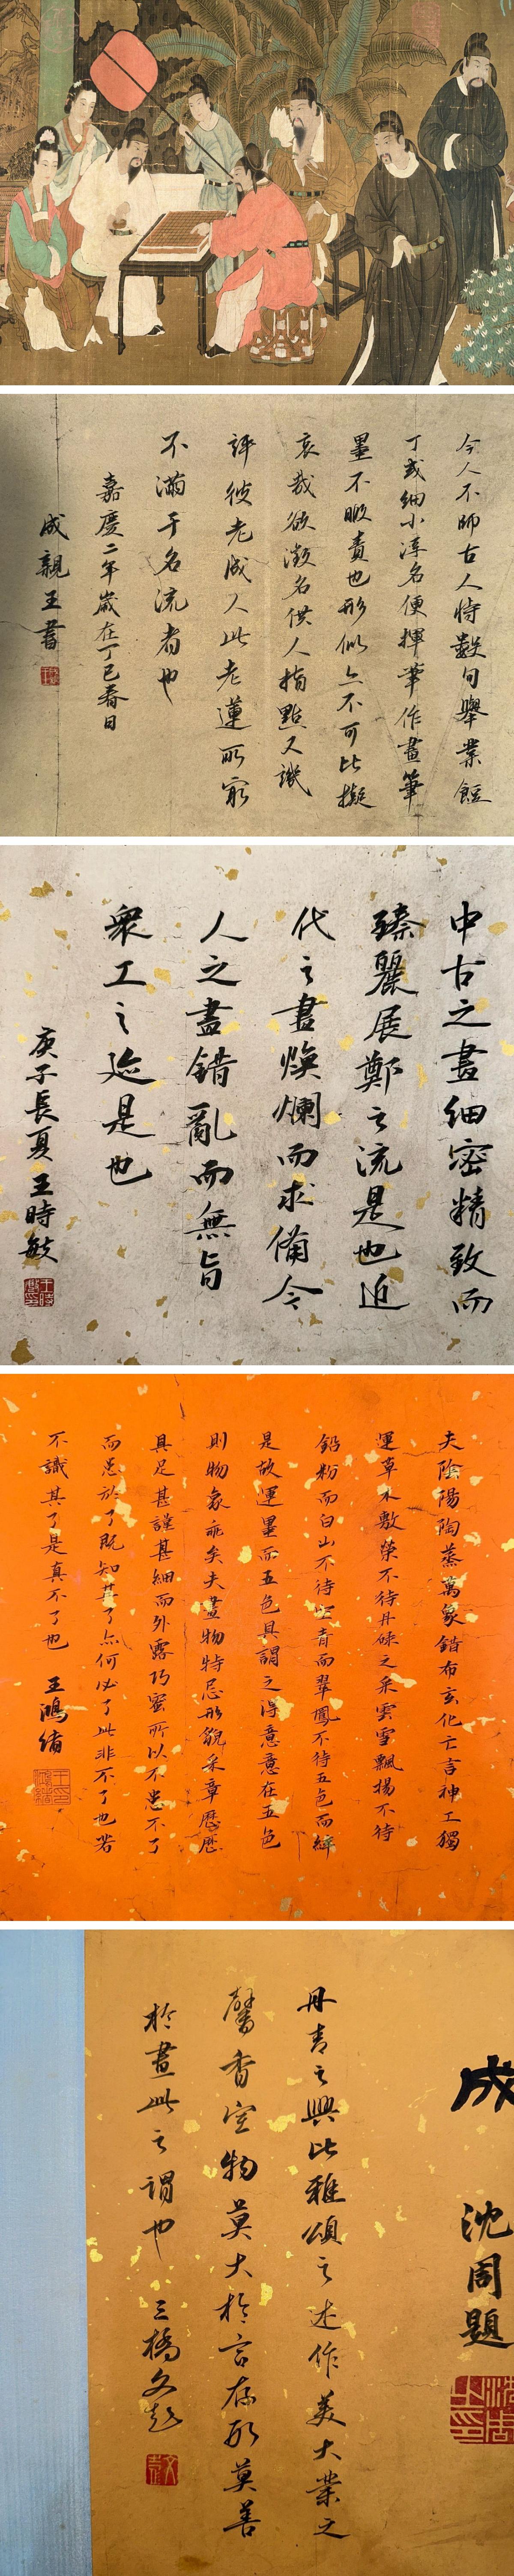 今人不師古人恃數句舉業餖
丁或細小浮名便揮筆作畫筆
墨不暇責也形似亦不可比擬
哀哉欲微名供人指點又譏
評彼老成人此老蓮所窮
不滿于名流者也
嘉慶二年歲在丁巳春日
成親王書
中古之畫細密精致而
臻麗展鄭之流是也近
代之畫煥爛而求備今
人之畫錯亂而無旨
衆工之迹是也
庚子長夏王時敏
夫陰陽陶蒸萬象錯布玄化亡言神工獨
運草木敷榮不待丹碌之采雲雪飄揚不待
鉛粉而白山不待空青而翠鳳不待五色而綷
是故運墨而五色具謂之得意意在五色
則物象乖矣夫畫物特忌形貌采章歷歷
具足甚謹甚細而外露巧密所以不患不了
而患於了既知其了亦何必了此非不了也若
不識其了是真不了也 王鴻緒
成
沈周題
沈周之印
丹青之興比雅頌之述作美大業之
馨香宣物莫大於言存形莫善
於畫此之謂也 三橋文